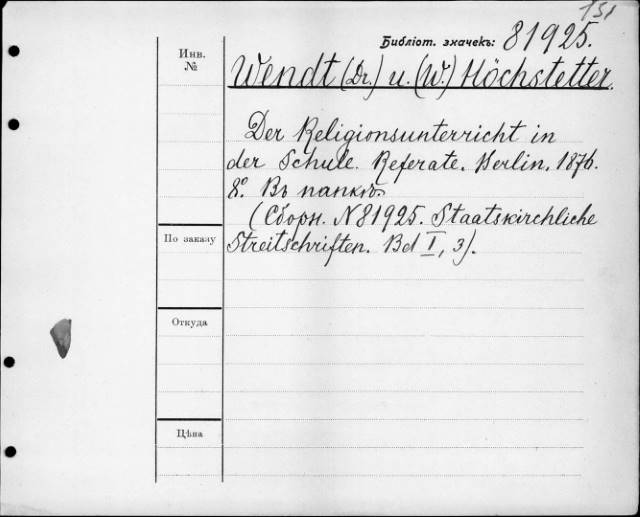 151
Библіот. значекъ: 81925.
Инв. №
Wendt (Dr.) u. (W.) Höchstetter.
Der Religionsunterricht in
der Schule. Referate. Berlin. 1876.
8°. Въ папкѣ.
(Сборн. N 81925. Staatskirchliche
Streitschriften. Bd I, 3).
По заказу
Откуда
Цѣна